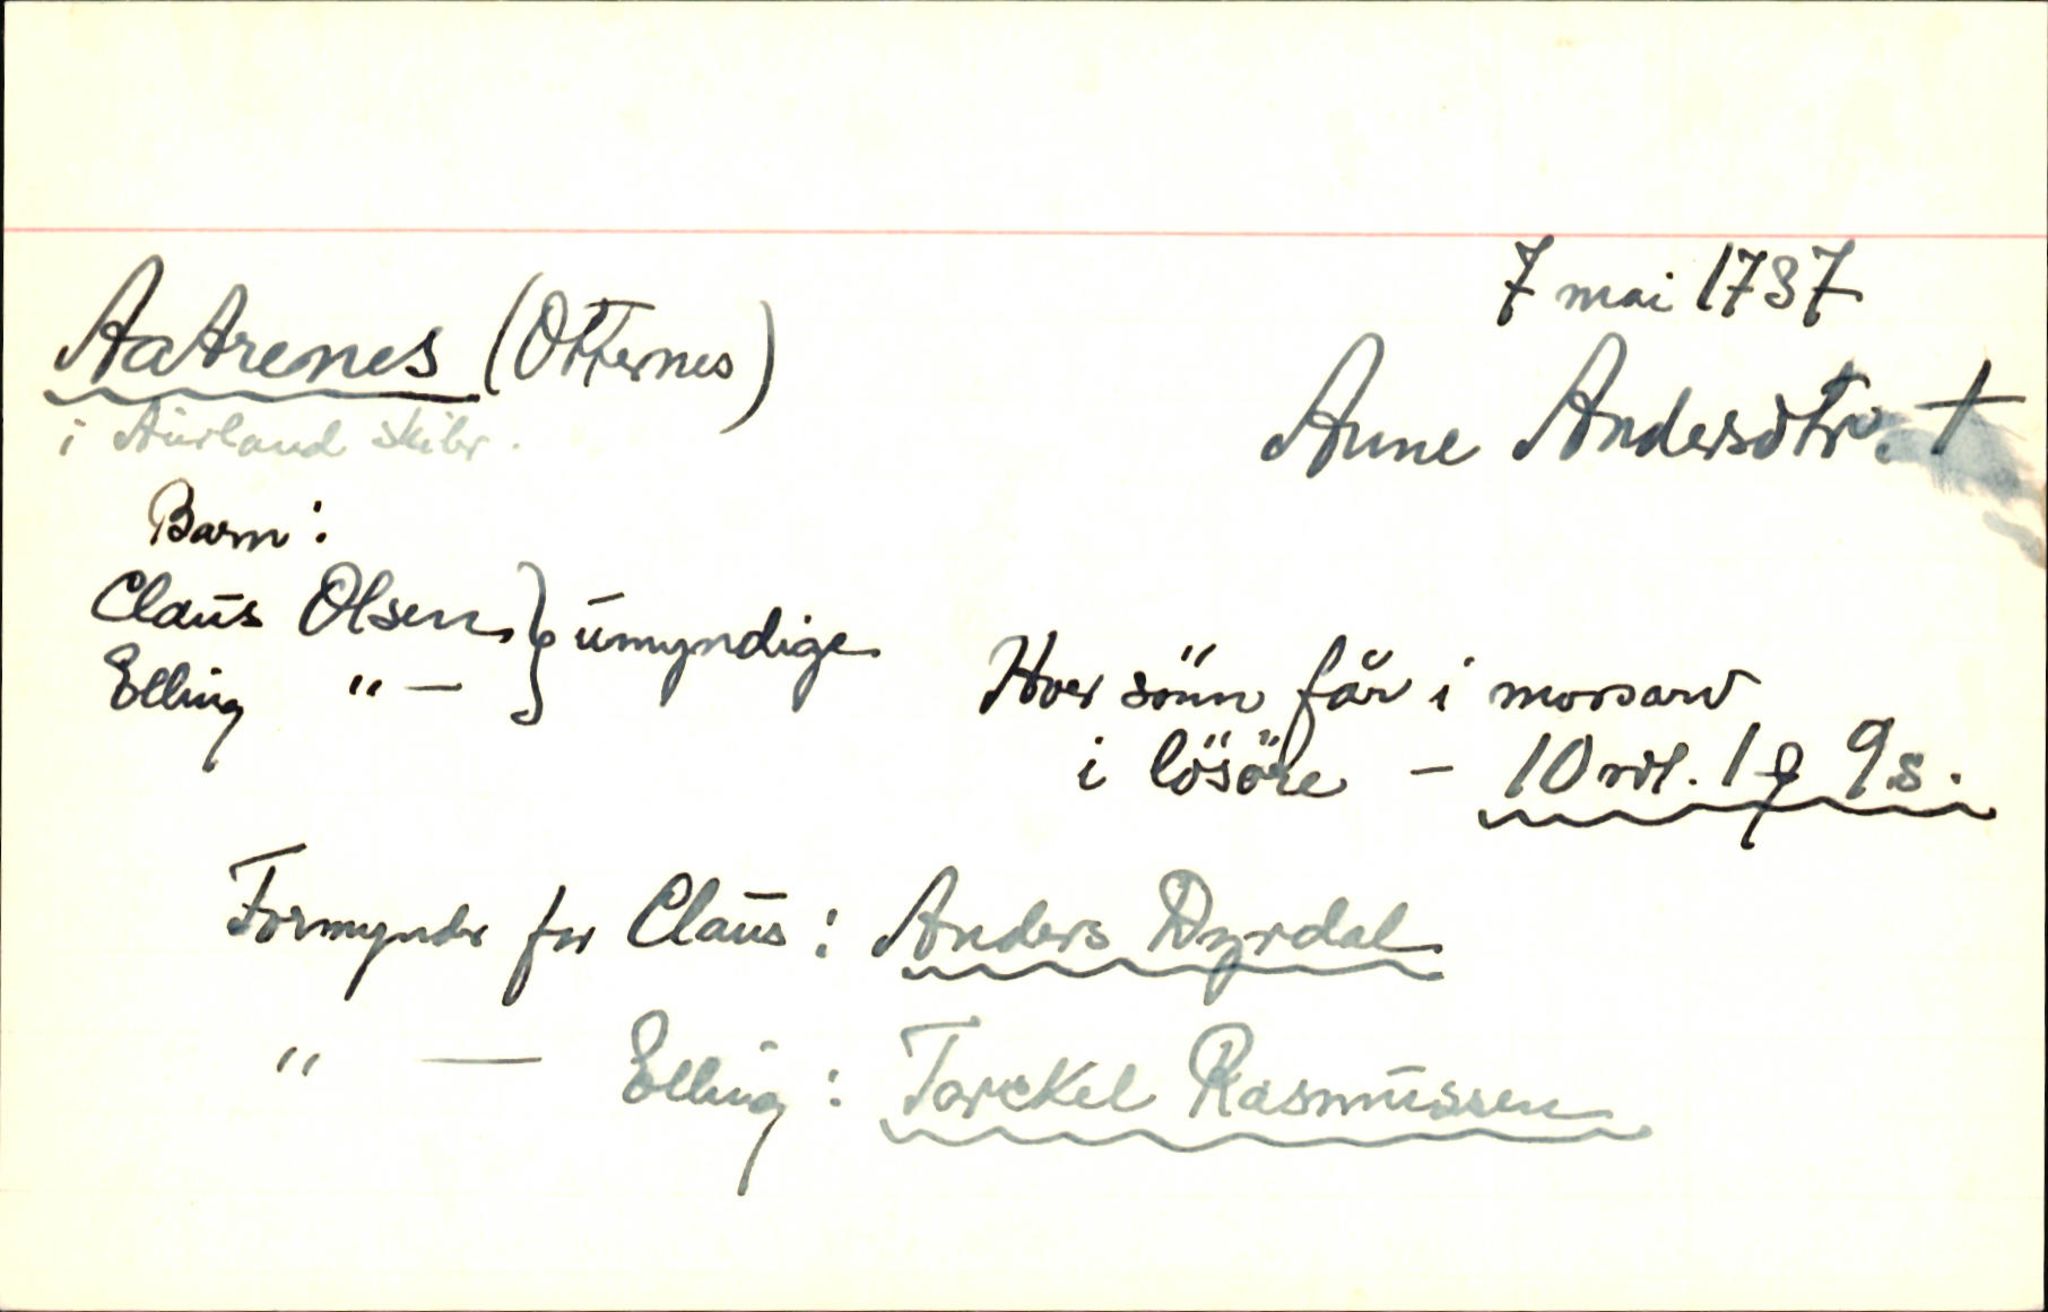 7 mai 1737
Aatrenes (Otternes)
i Aurland skibr.
Anne Andersdtr. †
Barn:
Claus Olsen } umyndige
Elling " —
Hver sönn får i morsarv
i lösöre — 10 rdl. 1 ƍ 9 s.
Formynder for Claus: Anders Dyrdal
" — Elling: Torckel Rasmussen